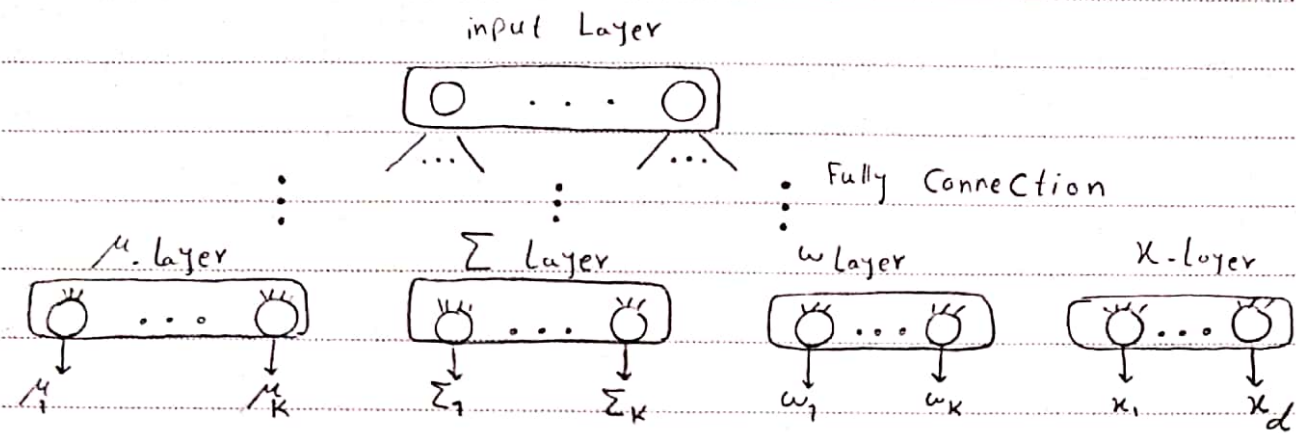 input Layer
Fully Connection
μ. Layer Σ Layer ω Layer x-layer
μ₁ μₖ Σ₁ Σₖ ω₁ ωₖ x₁ x_d